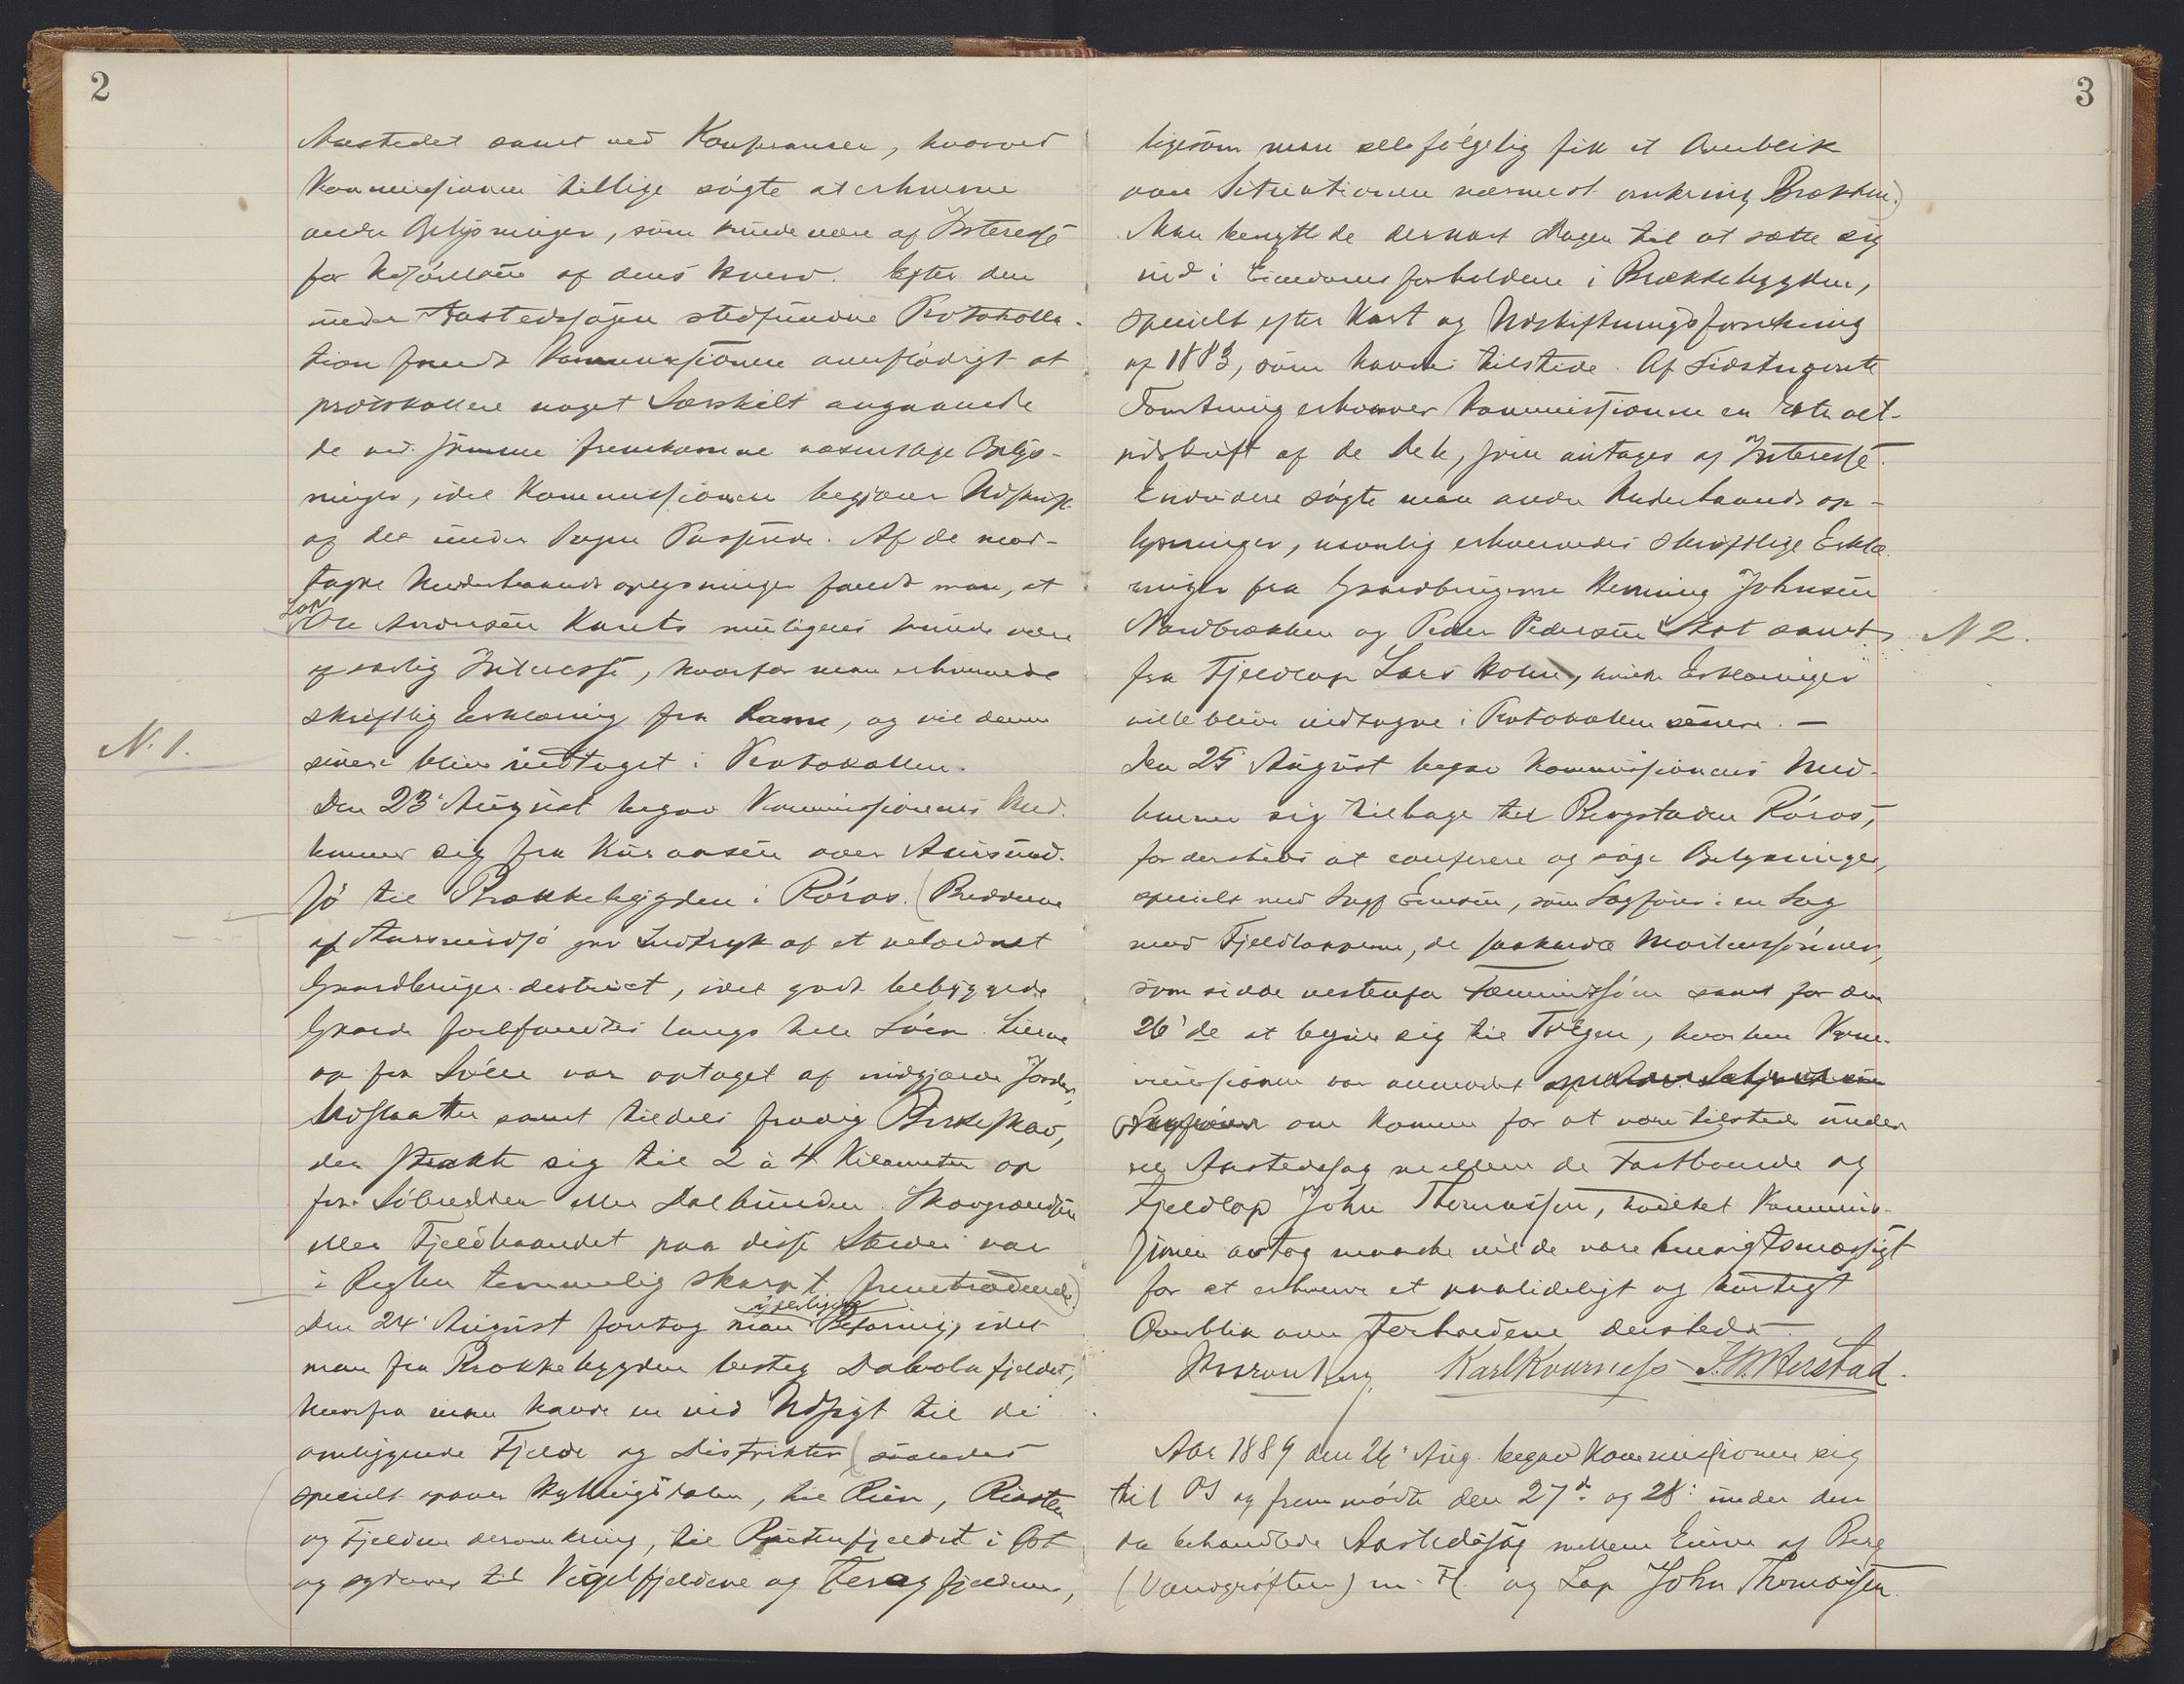 2
Aastedet samt ved Konferanser, hvorved
Kommissionen tillige søgte at erhverve
andre Belysninger, som kunde være af Interesse
for Udførelsen af dens Hverv. Efter den
under Aastedssagen stedfundne Protokolla-
tion fandt Kommissionen overflødigt at
protokollere noget Særskilt angaaende
de ved samme fremkomne væsentlige Belys-
ninger, idet Kommissionen begjærer Udskrift
af det under Sagen Passerede. Af de mod-
tagne Underhaandsoplysninger fandt man, at
Lap
Ole Andersen Kants muligens kunde være
af særlig Interesse, hvorfor man erhvervede
skriftlig Erklæring fra ham, og vil denne
N. 1.
senere blive indtaget i Protokollen.
Den 23' August begav Kommissionens Med-
lemmer sig fra Kuraasen over Aursund-
sø til Brækkebygden i Røros. (Bredderne
af Aursundsø gav Indtryk af et velordnet
Gaardbruger-destrict, idet godt bebyggede
Gaarde forefandtes langs hele Søen. Lierne
op fra Søen var optaget af indgjærde Jorder,
Udslaatter samt tildels frodig Birkeskov,
der strakte sig til 2 à 4 Kilometer op
fra Søbredden eller Dalbunden. Skovgrændsen
eller Fjeldbaandet paa disse Stæder var
i Reglen temmelig skarpt fremtrædende)
Den 24' August foretog man Befaring, idet
man fra Brækkebygden besteg Dalvola fjeldet,
hvorfra man havde en vid Udsigt til de
omliggende Fjelde og Distrikter (saaledes
specielt opover Hyllingsdalen, til Rien, Riasten
og Fjeldene deromkring, til Rutenfjeldet i Øst
og sydover til Vigelfjeldene og Feragfjeldene,
3
ligesom man selvfølgelig fik et Overblik
over Situationen nærmest omkring Brækken.)
Man benyttede dernæst Dagen til at sætte sig
ind i Eiendomsforholdene i Brækkebygden,
specielt efter Kart og Udskiftningsforretning
af 1883, som havdes tilstede. Af Sidstnævnte
Forretning erhverver Kommissionen en Extract-
udskrift af de Dele, som antages af Interesse.
Endvidere søgte man andre Underhaandsop-
lysninger, navnlig erhvervedes skriftlige Erklæ-
ringer fra Gaardbrugerne Henning Johnsen
Nordbrækken og Peder Pedersen Stot samt
N 2.
fra Fjeldlap Lars Holm, hvilke Erklæringer
ville blive indtagne i Protokollen senere. —
Den 25' August begav Kommissionens Med-
lemmer sig tilbage til Bergstaden Røros,
for dersteds at conferere og søge Belysninger,
specielt med Sagf Einersen, som Sagfører i en Sag
med Fjeldlapperne, de saakaldte Mortenssønner,
som sidde vestenfor Fæmundsøen samt for den
26'de at begive sig til Tolgen, hvorhen Kom-
missionen var anmodet
om komme for at være tilstede under
en Aastedssag mellem de Fastboende og
Fjeldlap John Thomassen, hvilket Kommis-
sionen antog maaske vilde være hensigtsmæssigt
for at erhverve et paalideligt og hurtigt
Overblik over Forholdene dersteds.
Karl Kvarness J. N. Herstad.
Aar 1889 den 26' Aug. begav Kommissionen sig
til Os og fremmødte den 27de og 28' under den
da behandlede Aastedssag mellem Eiere af Berg
(Vangrøften) m. Fl. og Lap John Thomassen.
N. 1.